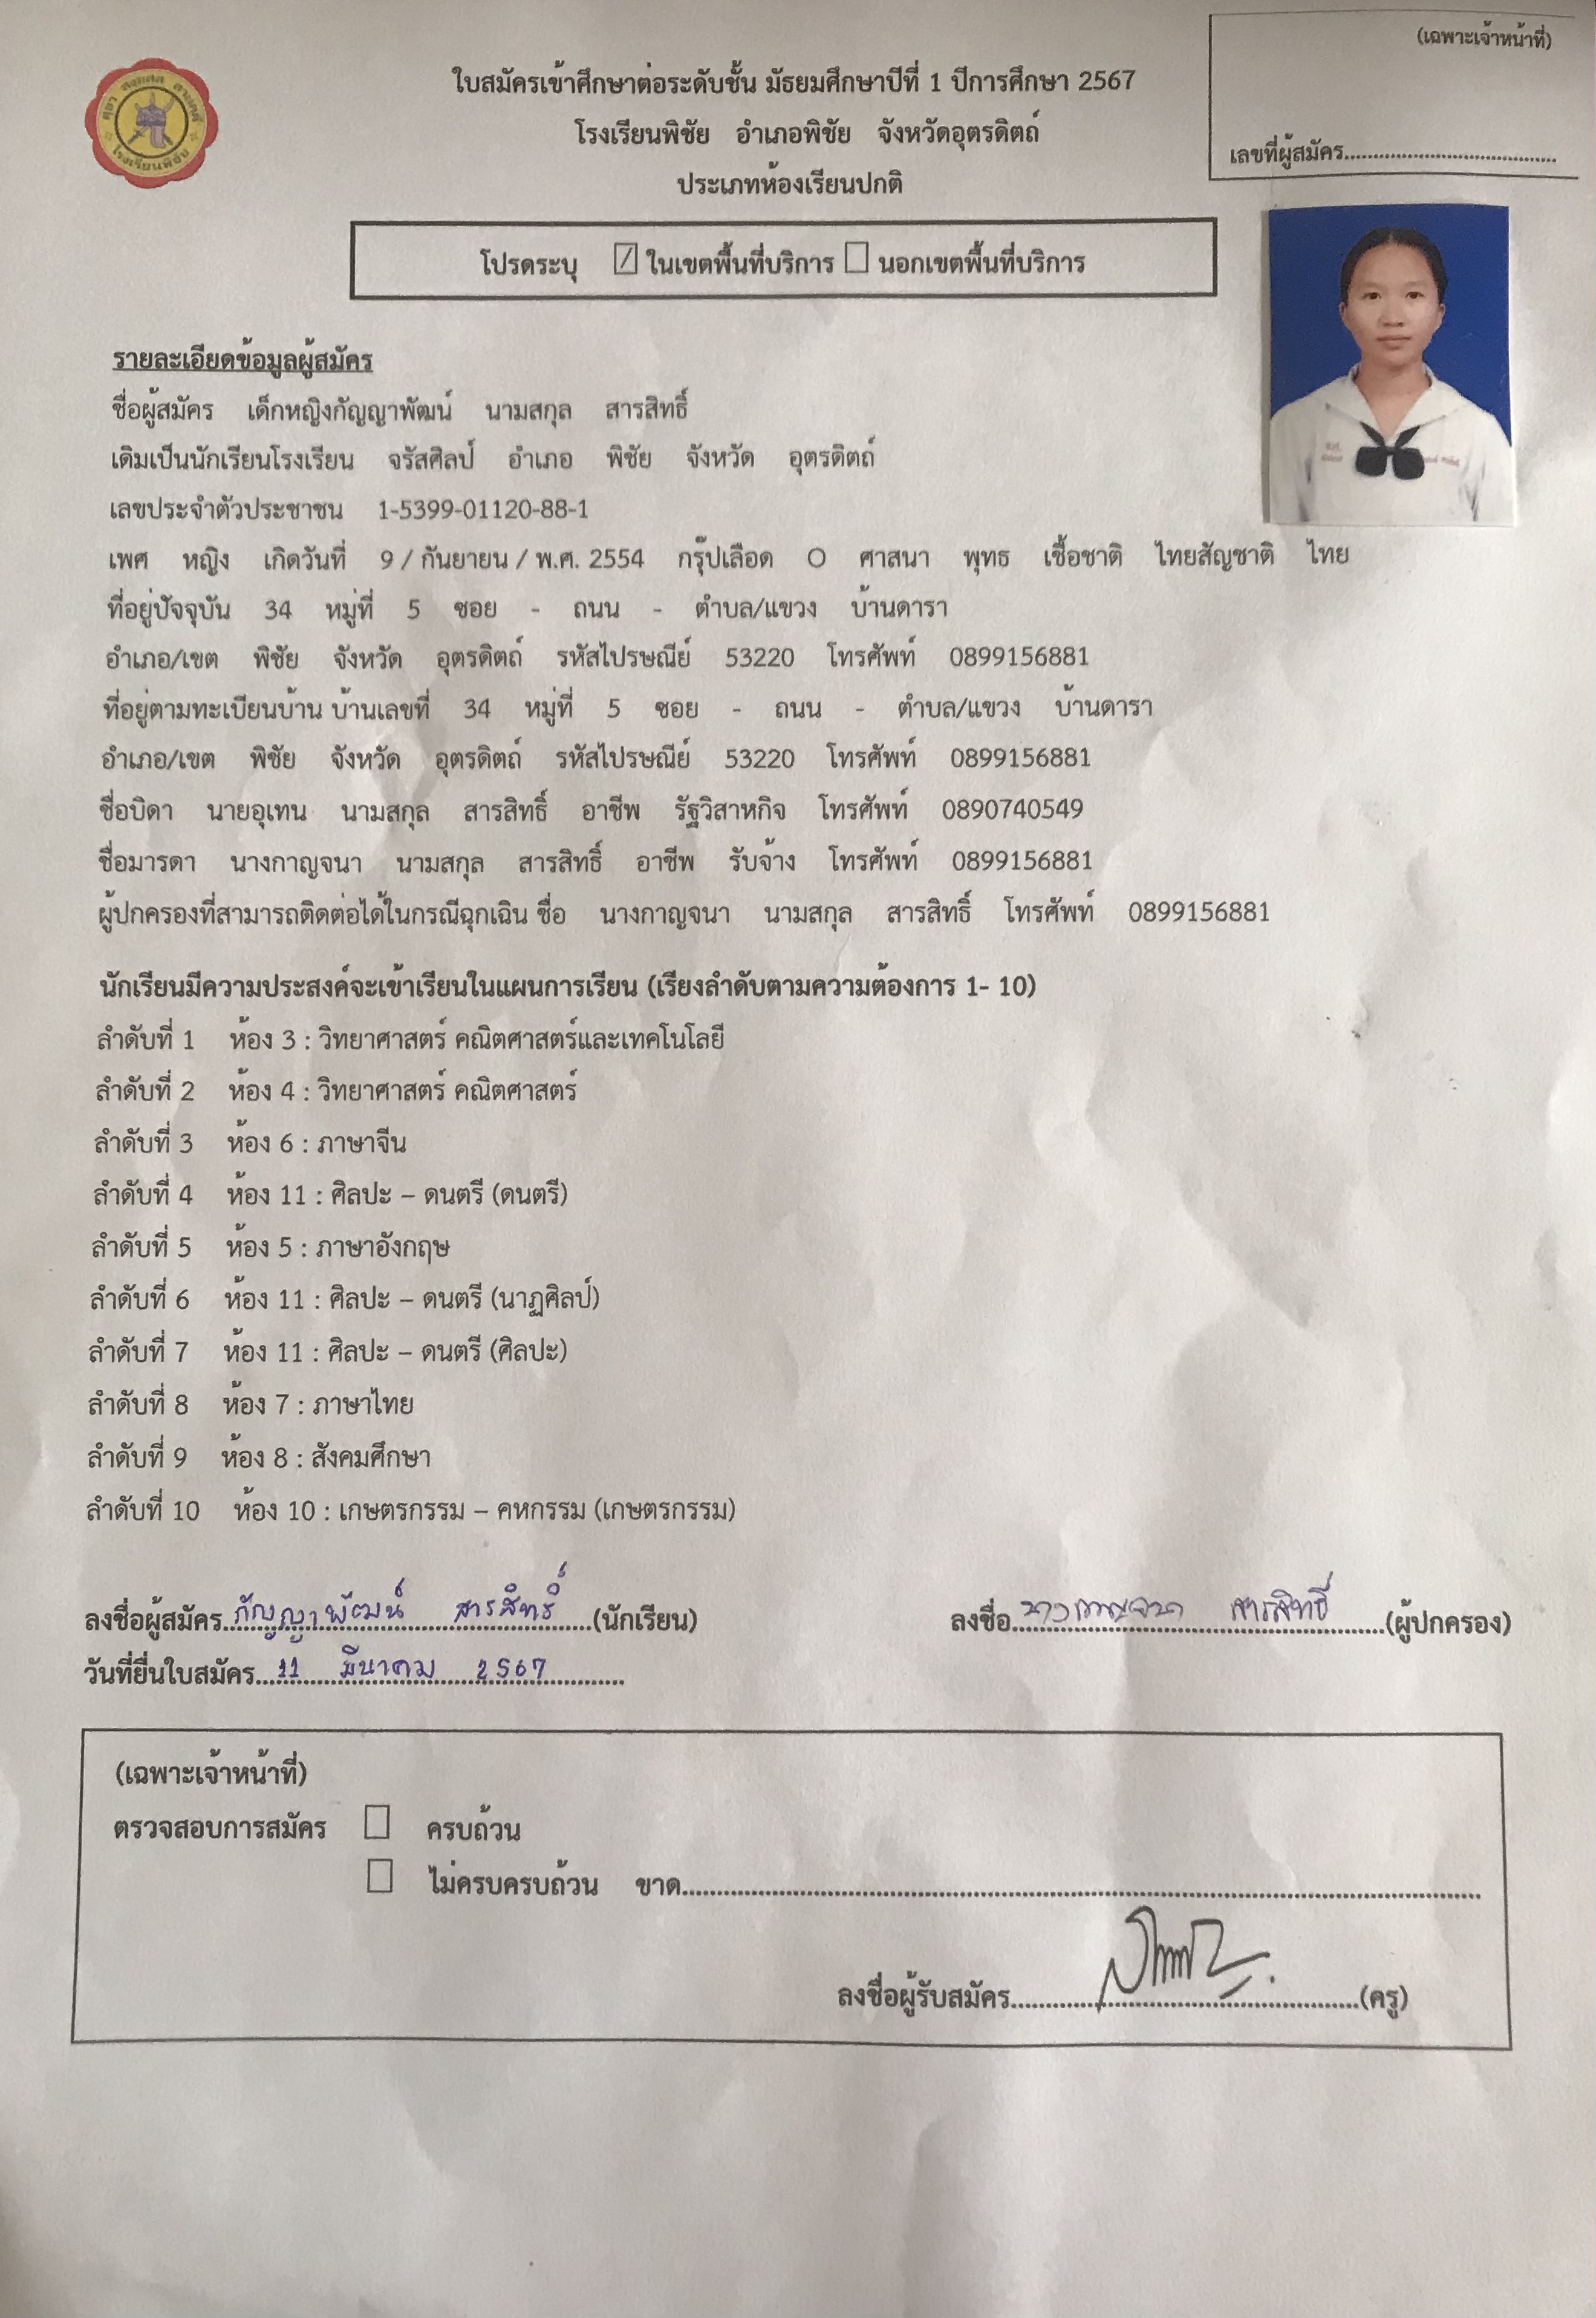 (เฉพาะเจ้าหน้าที่)
เลขที่ผู้สมัคร
โรงเรียนพิชัย
ใบสมัครเข้าศึกษาต่อระดับชั้น มัธยมศึกษาปีที่ 1 ปีการศึกษา 2567
โรงเรียนพิชัย อำเภอพิชัย จังหวัดอุตรดิตถ์
ประเภทห้องเรียนปกติ
โปรดระบุ ในเขตพื้นที่บริการ นอกเขตพื้นที่บริการ
รายละเอียดข้อมูลผู้สมัคร
ชื่อผู้สมัคร เด็กหญิงกัญญาพัฒน์ นามสกุล สารสิทธิ์
เดิมเป็นนักเรียนโรงเรียน จรัสศิลป์ อำเภอ พิชัย จังหวัด อุตรดิตถ์
เลขประจำตัวประชาชน 1-5399-01120-88-1
เพศ หญิง เกิดวันที่ 9 / กันยายน / พ.ศ. 2554 กรุ๊ปเลือด O ศาสนา พุทธ เชื้อชาติ ไทยสัญชาติ ไทย
ที่อยู่ปัจจุบัน 34 หมู่ที่ 5 ซอย - ถนน - ตำบล/แขวง บ้านดารา
อำเภอ/เขต พิชัย จังหวัด อุตรดิตถ์ รหัสไปรษณีย์ 53220 โทรศัพท์ 0899156881
ที่อยู่ตามทะเบียนบ้าน บ้านเลขที่ 34 หมู่ที่ 5 ซอย - ถนน - ตำบล/แขวง บ้านดารา
อำเภอ/เขต พิชัย จังหวัด อุตรดิตถ์ รหัสไปรษณีย์ 53220 โทรศัพท์ 0899156881
ชื่อบิดา นายอุเทน นามสกุล สารสิทธิ์ อาชีพ รัฐวิสาหกิจ โทรศัพท์ 0890740549
ชื่อมารดา นางกาญจนา นามสกุล สารสิทธิ์ อาชีพ รับจ้าง โทรศัพท์ 0899156881
ผู้ปกครองที่สามารถติดต่อได้ในกรณีฉุกเฉิน ชื่อ นางกาญจนา นามสกุล สารสิทธิ์ โทรศัพท์ 0899156881
นักเรียนมีความประสงค์จะเข้าเรียนในแผนการเรียน (เรียงลำดับตามความต้องการ 1- 10)
ลำดับที่ 1 ห้อง 3 : วิทยาศาสตร์ คณิตศาสตร์และเทคโนโลยี
ลำดับที่ 2 ห้อง 4 : วิทยาศาสตร์ คณิตศาสตร์
ลำดับที่ 3 ห้อง 6 : ภาษาจีน
ลำดับที่ 4 ห้อง 11 : ศิลปะ – ดนตรี (ดนตรี)
ลำดับที่ 5 ห้อง 5 : ภาษาอังกฤษ
ลำดับที่ 6 ห้อง 11 : ศิลปะ – ดนตรี (นาฏศิลป์)
ลำดับที่ 7 ห้อง 11 : ศิลปะ – ดนตรี (ศิลปะ)
ลำดับที่ 8 ห้อง 7 : ภาษาไทย
ลำดับที่ 9 ห้อง 8 : สังคมศึกษา
ลำดับที่ 10 ห้อง 10 : เกษตรกรรม – คหกรรม (เกษตรกรรม)
ลงชื่อผู้สมัคร กัญญาพัฒน์ สารสิทธิ์ (นักเรียน) ลงชื่อ นางกาญจนา สารสิทธิ์ (ผู้ปกครอง)
วันที่ยื่นใบสมัคร 11 มีนาคม 2567
(เฉพาะเจ้าหน้าที่)
ตรวจสอบการสมัคร ครบถ้วน
ไม่ครบครบถ้วน ขาด
ลงชื่อผู้รับสมัคร (ครู)